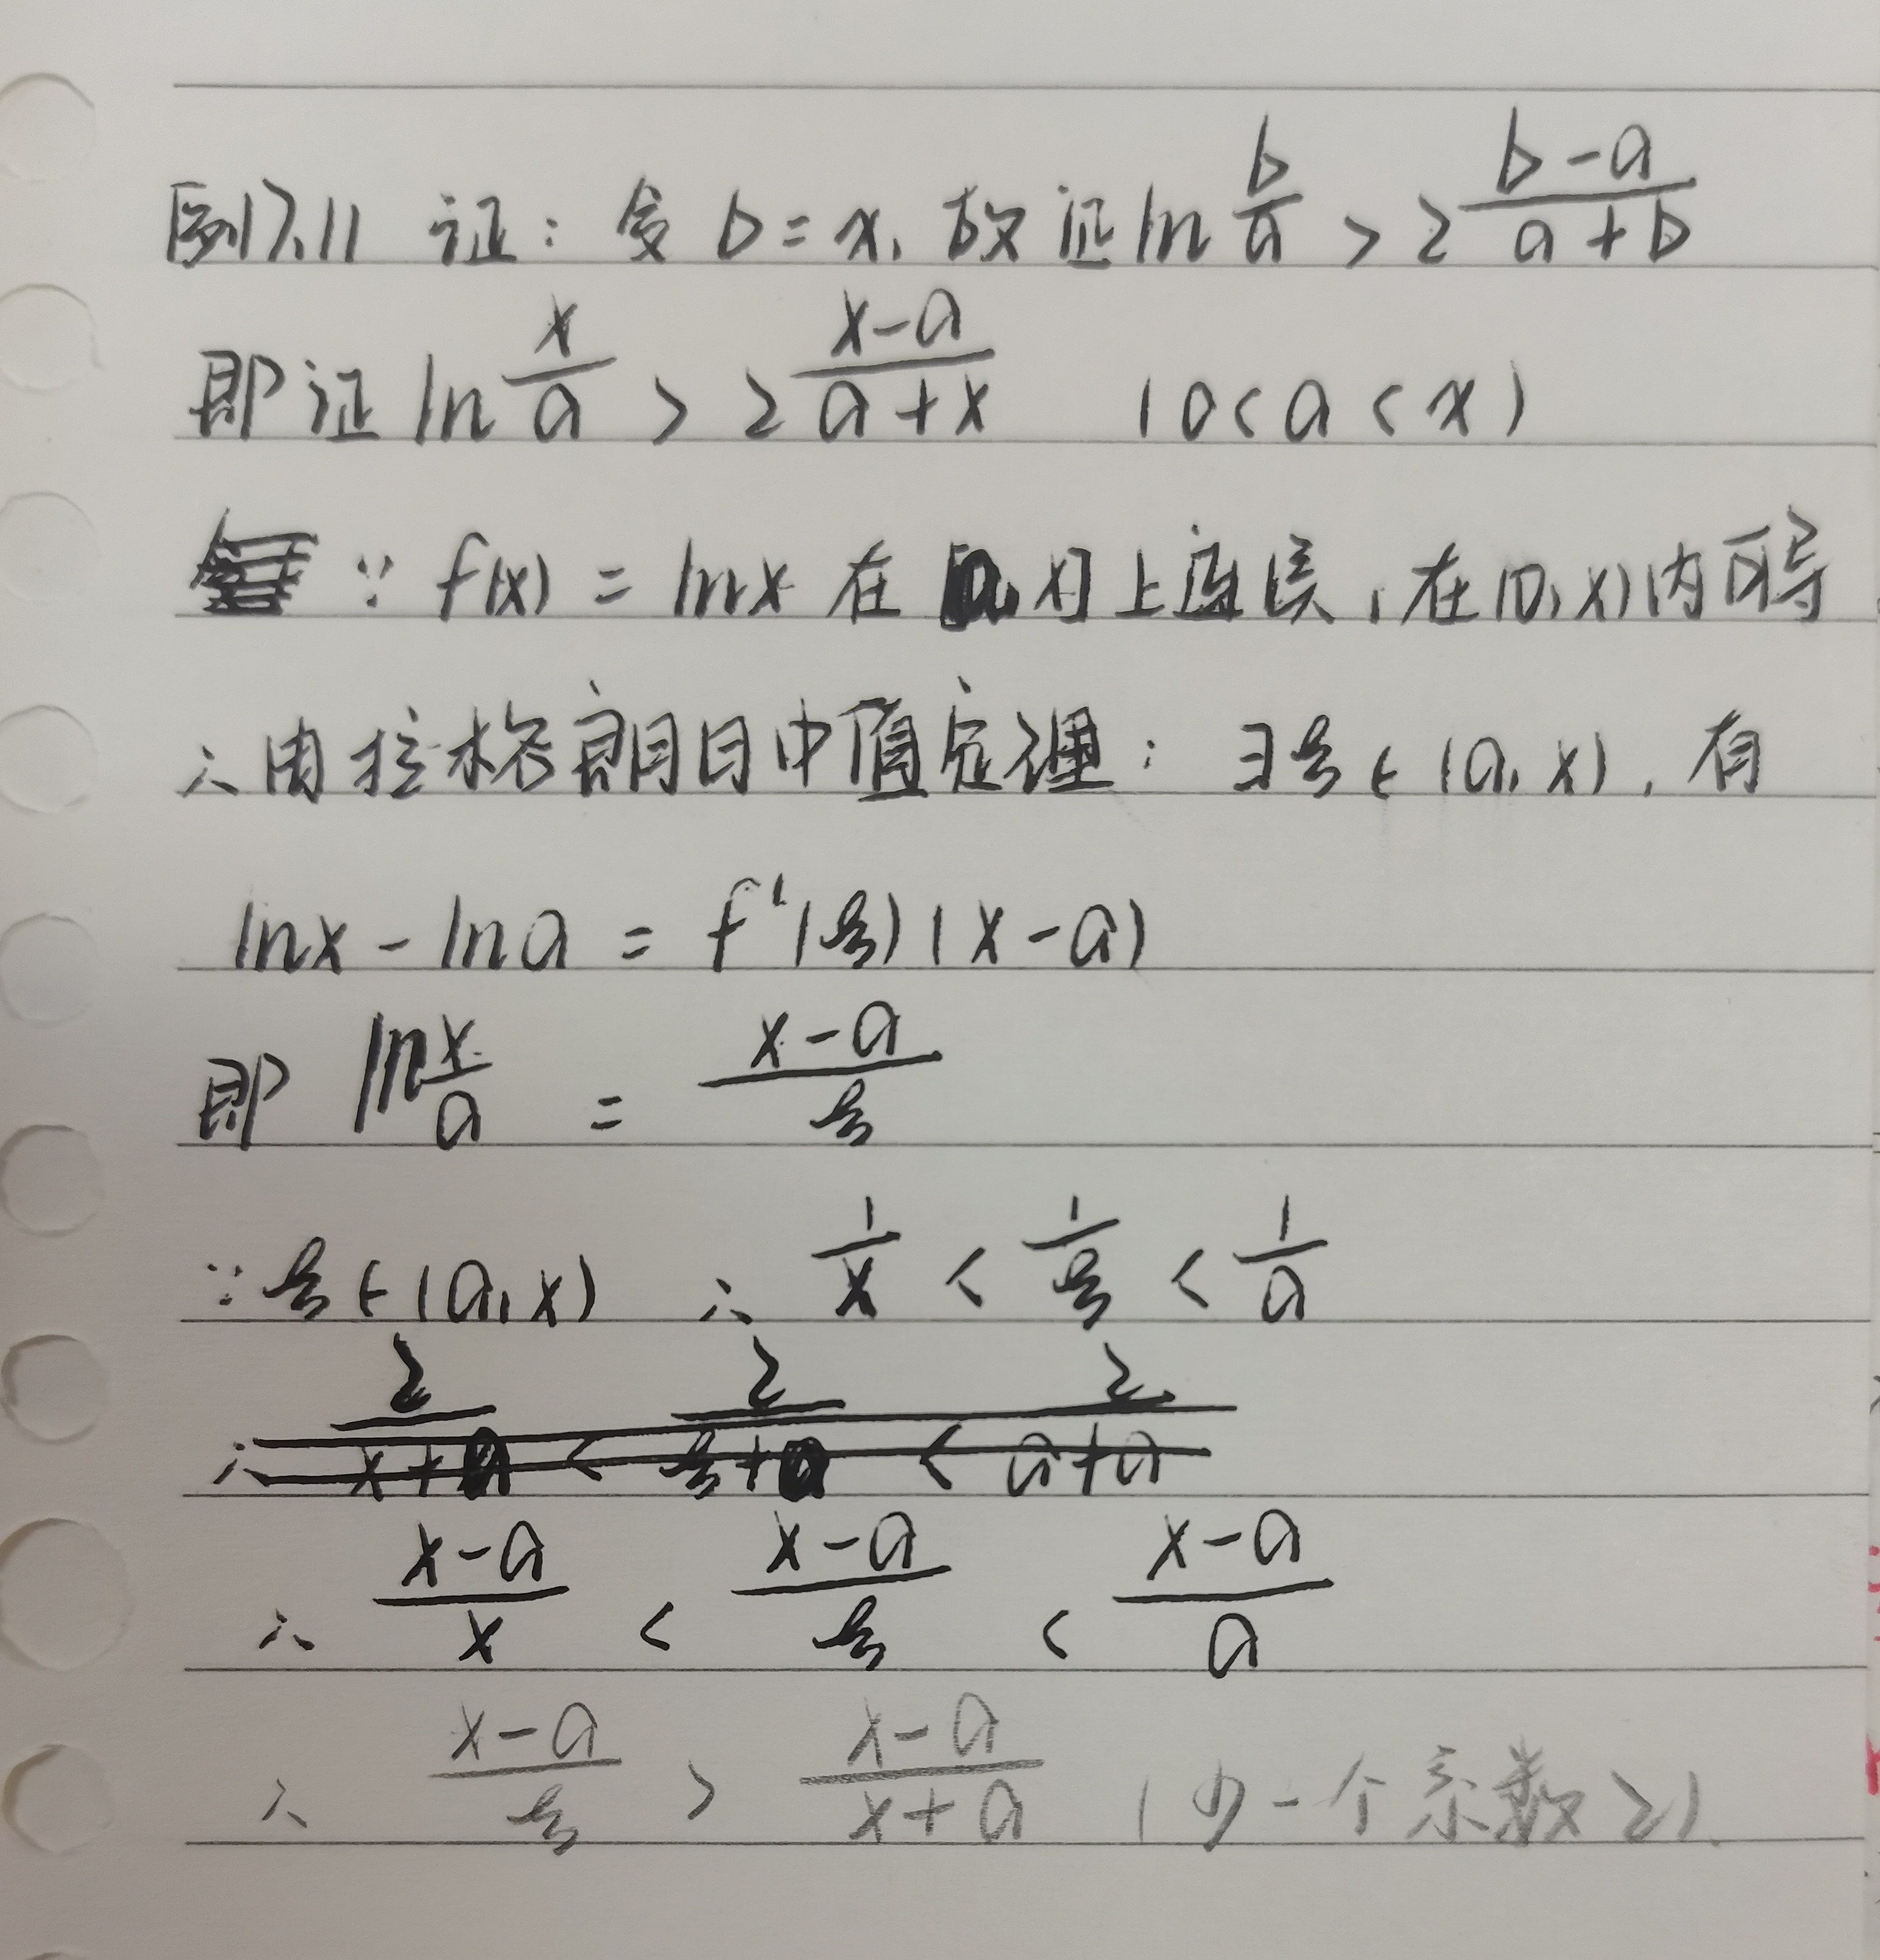 例7.11 证: 令 b=x, 故证 ln b/a > 2 (b-a)/(a+b)
即证 ln x/a > 2 (x-a)/(a+x) (0<a<x)
∵ f(x) = lnx 在 [a, x] 上连续, 在 (a, x) 内可导
∴ 由拉格朗日中值定理: ∃ξ∈(a, x), 有
lnx - lna = f'(ξ)(x-a)
即 ln x/a = (x-a)/ξ
∵ ξ∈(a, x) ∴ 1/x < 1/ξ < 1/a
∴ 2/(x+a) < 2/(ξ+a) < 2/(a+a)
∴ (x-a)/x < (x-a)/ξ < (x-a)/a
∴ (x-a)/ξ > (x-a)/(x+a) (少一个系数2)